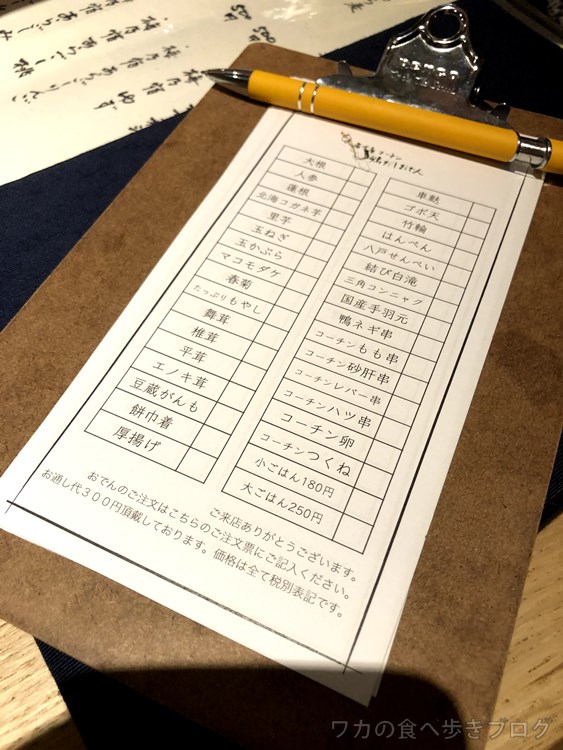 鶏だしおでん
大根
人参
蓮根
北海コガネ芋
里芋
玉ねぎ
玉かぶら
マコモダケ
春菊
たっぷりもやし
舞茸
椎茸
平茸
エノキ茸
豆蔵がんも
餅巾着
厚揚げ
車麩
ゴボ天
竹輪
はんぺん
八戸せんべい
結び白滝
三角コンニャク
国産手羽元
鴨ネギ串
コーチンもも串
コーチン砂肝串
コーチンレバー串
コーチンハツ串
コーチン卵
コーチンつくね
小ごはん180円
大ごはん250円
ご来店ありがとうございます。
おでんのご注文はこちらのご注文票にご記入ください。
お通し代300円頂戴しております。価格は全て税別表記です。
ワカの食べ歩きブログ